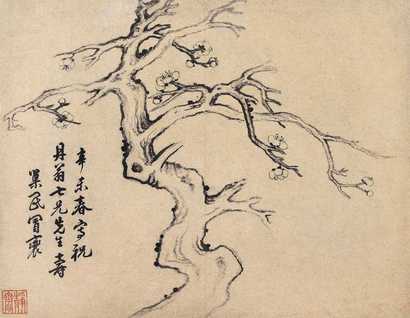 辛未春写祝
丹翁七兄先生寿
巢民冒襄